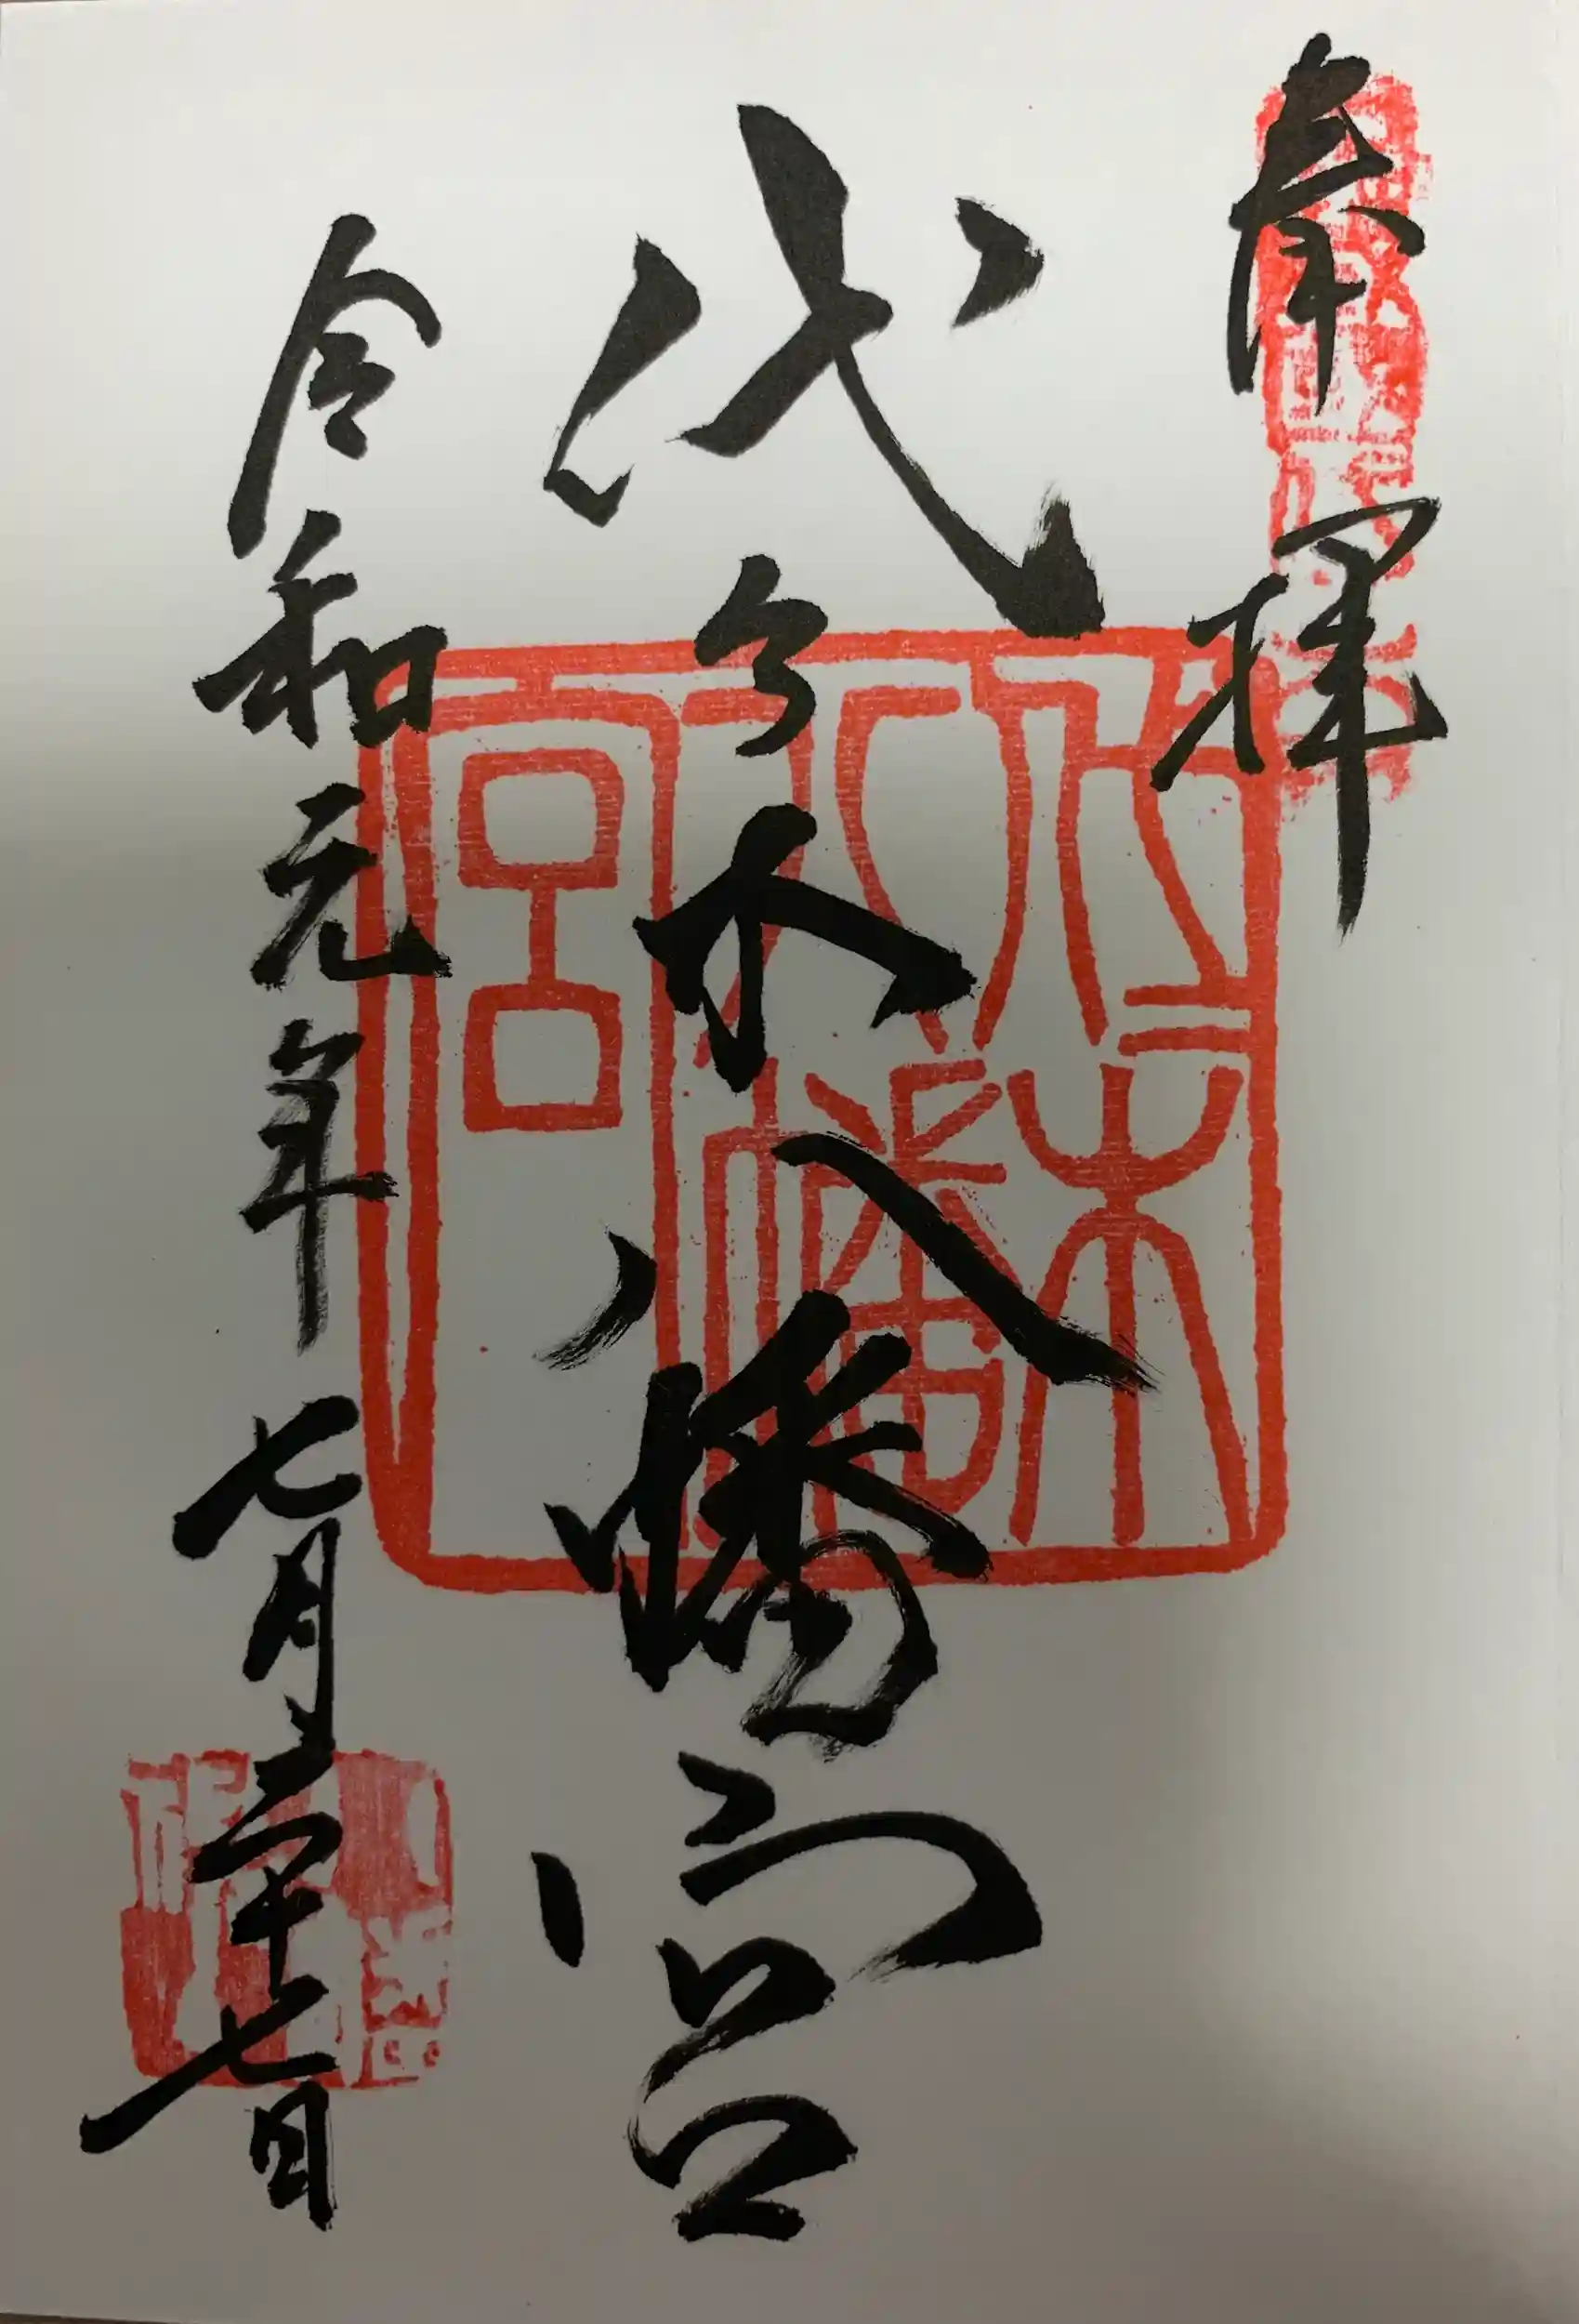 奉拝
代々木八幡宮
令和元年七月二十七日
代々木八幡宮